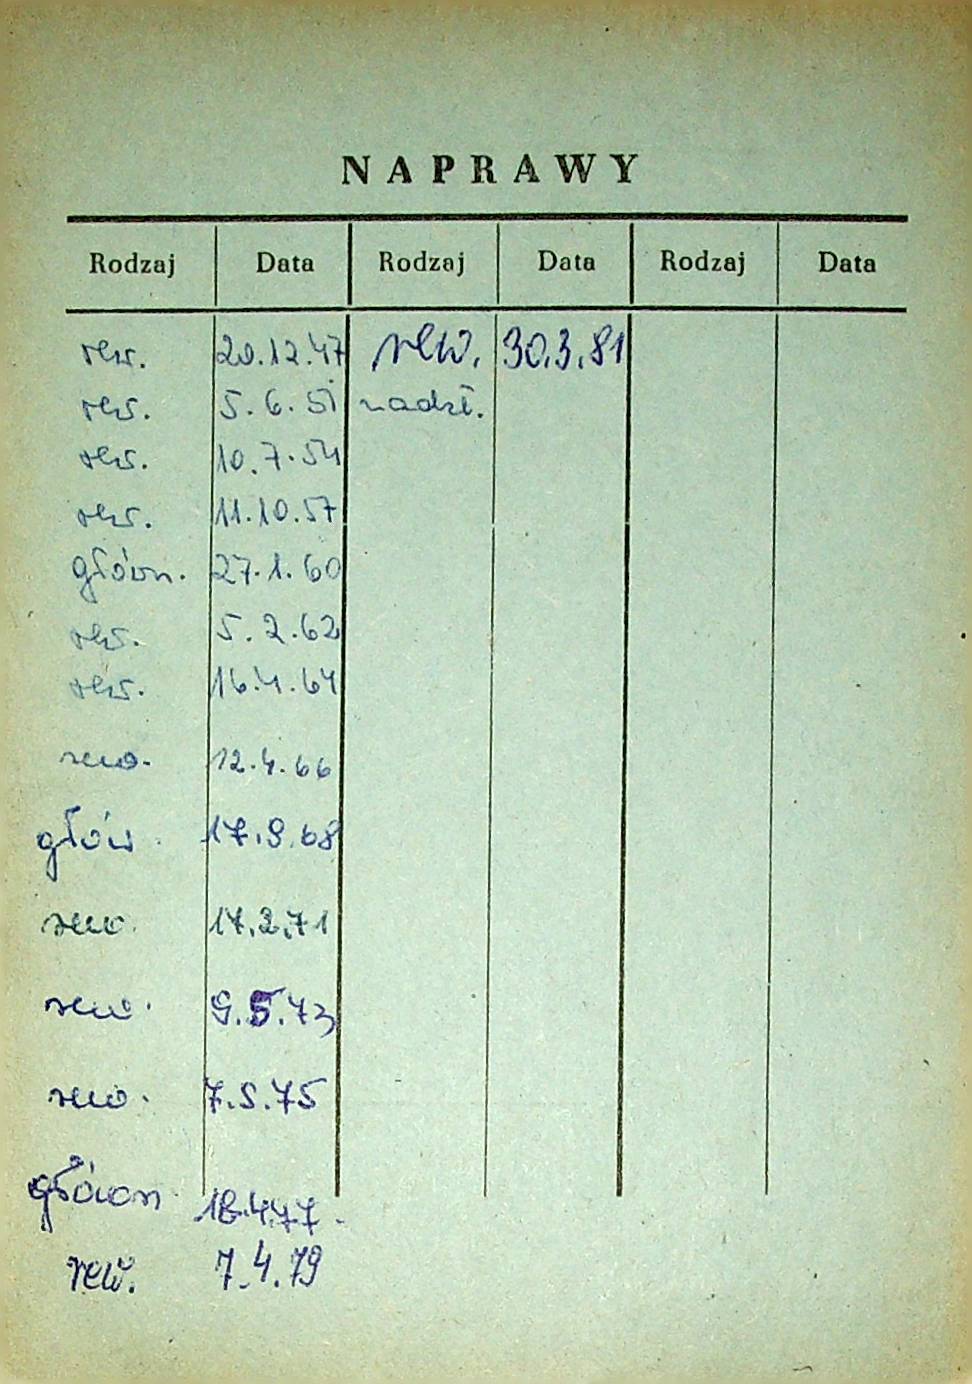 NAPRAWY
Rodzaj Data Rodzaj Data Rodzaj Data
rew. 20.12.47 rew. 30.3.81
rew. 5.6.51 nadzt.
rew. 10.7.54
rew. 11.10.57
główn. 27.1.60
rew. 5.2.62
rew. 16.4.64
rew. 12.4.66
głów. 17.9.68
rew. 17.2.71
rew. 9.5.73
rew. 7.5.75
główn 18.4.77.
rew. 7.4.79